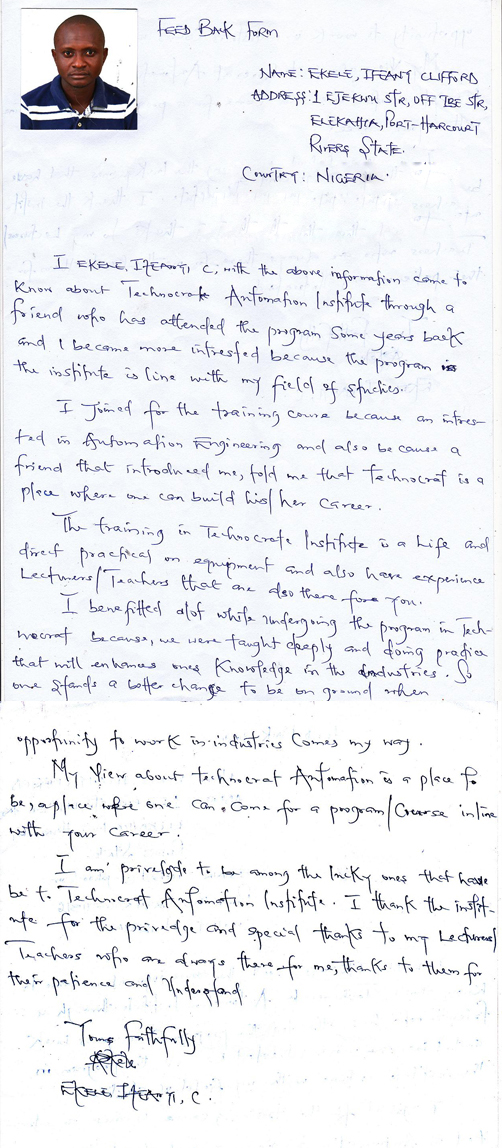 FEED BACK FORM
NAME: EKELE, IFEANYI CLIFFORD
ADDRESS: 1 EJEKWU STR, OFF IBE STR,
ELIKAHIA, PORT-HARCOURT
RIVERS STATE.
COUNTRY: NIGERIA.
I EKELE, IFEANYI, C, with the above information came to
Know about Technocrat Automation Institute through a
friend who has attended the program Some years back
and I become more intrested because the program
the institute is line with my field of studies.
I Joined for the training course because an intres-
ted in Automation Engineering and also because a
friend that introduced me, told me that Technocrat is a
place where one can build his/her Career.
The training in Technocrate Institute is a Life and
direct practical on equipment and also have experience
Lecturers/Teachers that are also there for you.
I benefitted alot while undergoing the program in Tech-
nocrat because, we were taught deeply and doing practice
that will enhances ones Knowledge in the industries. So
one stands a better change to be on ground when
opportunity to work in industries Comes my way.
My View about technocrat Automation is a place to
be, a place where one can Come for a program/Course inline
with your Career.
I am privelgde to be among the lucky ones that have
be to Technocrat Automation Institute. I thank the instit-
ute for the priviedge and special thanks to my Lecturers/
Teachers who are always there for me, thanks to them for
their patience and Understand
Yours faithfully
EKELE IFEANYI, C.